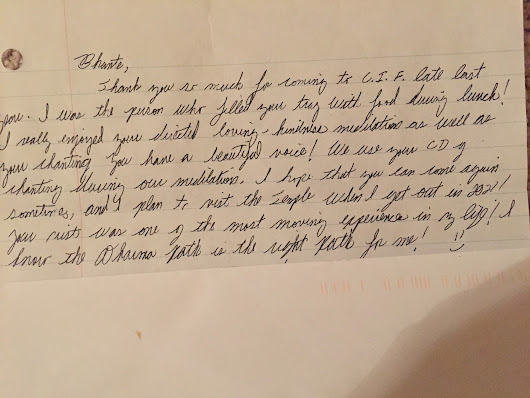 Bhante,
Thank you so much for coming to C.I.F. late last
year. I was the person who filled your tray with food during lunch!
I really enjoyed your directed loving-kindness meditation as well as
your chanting. You have a beautiful voice! We use your CD of
chanting during our meditation. I hope that you can come again
sometime, and I plan to visit the Temple when I get out in
Your visit was one of the most moving experience in my life! I
know the Dharma Path is the right Path for me! :)